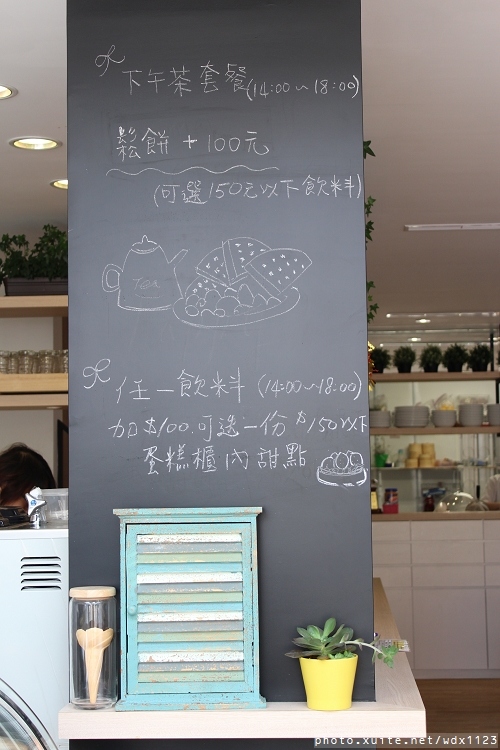 下午茶套餐(14:00~18:00)
鬆餅+100元
(可選150元以下飲料)
Tea
任一飲料 (14:00~18:00)
加$100.可選一份$150以下
蛋糕櫃內甜點
photo.xuite.net/wdx1123